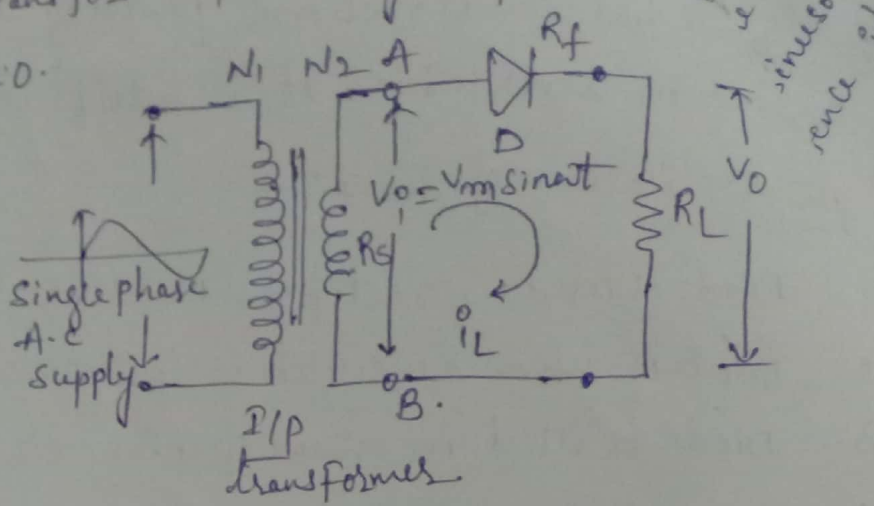 N1 N2 A Rf
D
Vi = Vm sinωt
Vo
RL
Rs
iL
Single phase
A.C
supply
B.
I/P
transformer